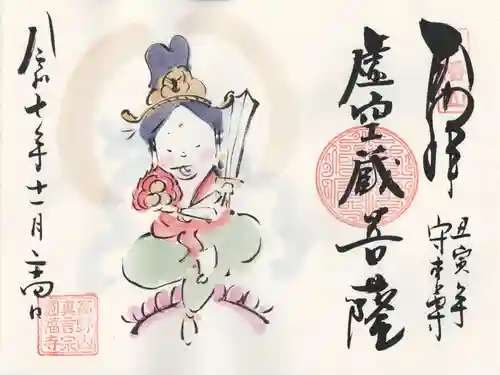 奉拝
丑寅年
守本尊
虚空蔵菩薩
令和七年十一月二十四日
真言宗
圓福寺